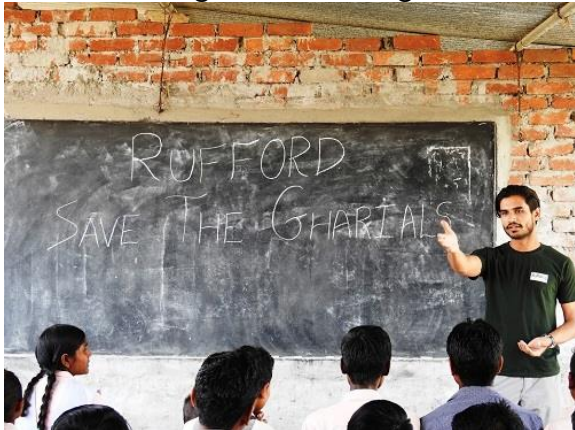 RUFFORD
SAVE THE GHARIALS